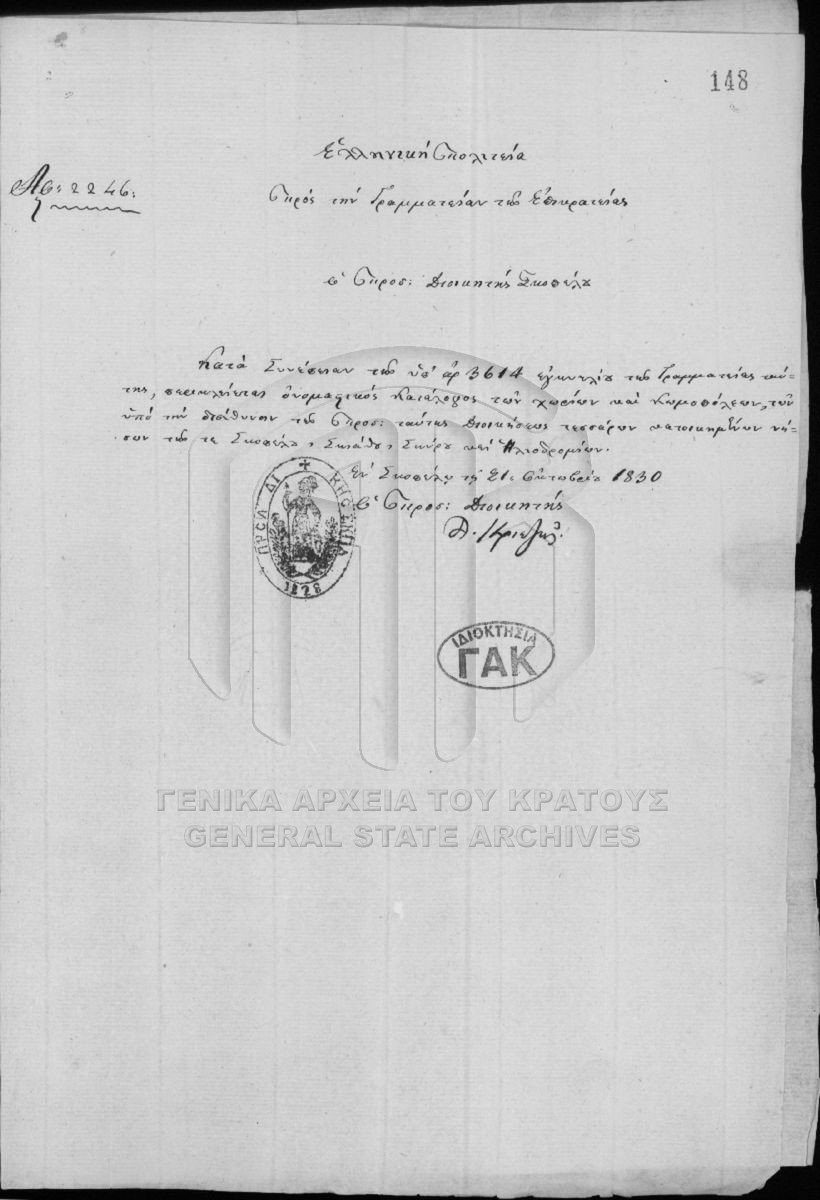 148
Ἑλληνική Πολιτεία
Αρ: 2246:
Πρός τήν Γραμματείαν τῆς Ἐπικρατείας
Ὁ Προσ: Διοικητής Σκοπέλου
Κατά Συνέπειαν τῆς ὑπ' ἀρ 3614 ἐγκυκλίου τῆς Γραμματείας ταύ-
της, περικλείεται ὀνομαστικός κατάλογος τῶν χωρίων καί κωμοπόλεων, τῶν
ὑπό τήν διεύθυνσιν τῆς Προσ: ταύτης Διοικήσεως τεσσάρων κατοικημένων νή-
σων τῆς τε Σκοπέλου, Σκιάθου, Σκύρου καί Ἡλιοδρομίων.
Ἐν Σκοπέλῳ τῇ 21: Ὀκτωβρίου 1830
Ὁ Προσ: Διοικητής
ΔΙ ΚΗΣ
1828
ΙΔΙΟΚΤΗΣΙΑ
ΓΑΚ
ΓΕΝΙΚΑ ΑΡΧΕΙΑ ΤΟΥ ΚΡΑΤΟΥΣ
GENERAL STATE ARCHIVES